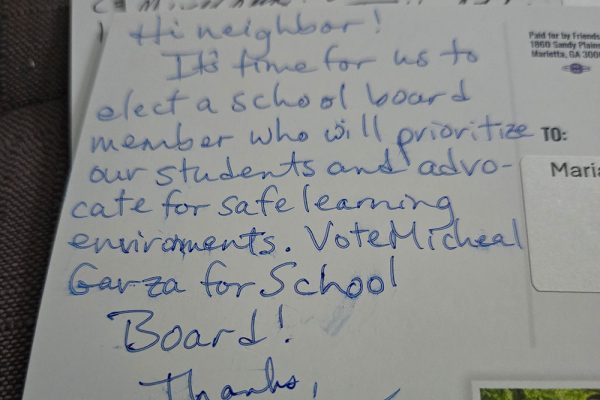 Hi neighbor!
It's time for us to
elect a school board
member who will prioritize
our students and advo-
cate for safe learning
enviroments. Vote Micheal
Garza for School
Board!
Thanks,
Paid for by Friends
1860 Sandy Plains
Marietta, GA 300
TO:
Maria